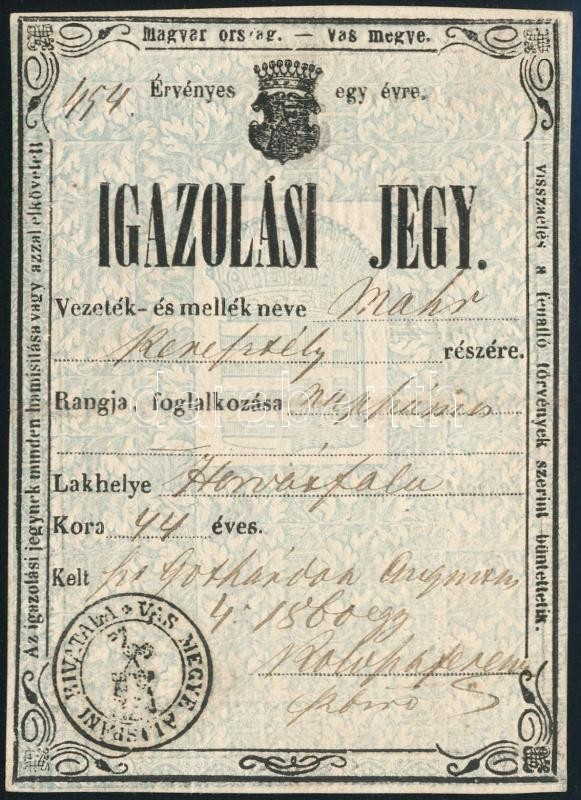 Magyar ország. — Vas megye.
454.
Érvényes egy évre.
IGAZOLÁSI JEGY.
Vezeték- és mellék neve Mahr
részére.
Rangja, foglalkozása
Lakhelye Horvátfalu
Kora 44 éves.
Kelt Gothárdon
Az igazolási jegynek minden hamisitása vagy azzal elkövetett
visszaélés a fenálló törvények szerint büntettetik.
VAS MEGYE ALISPÁNI HIVATALA
darabanth